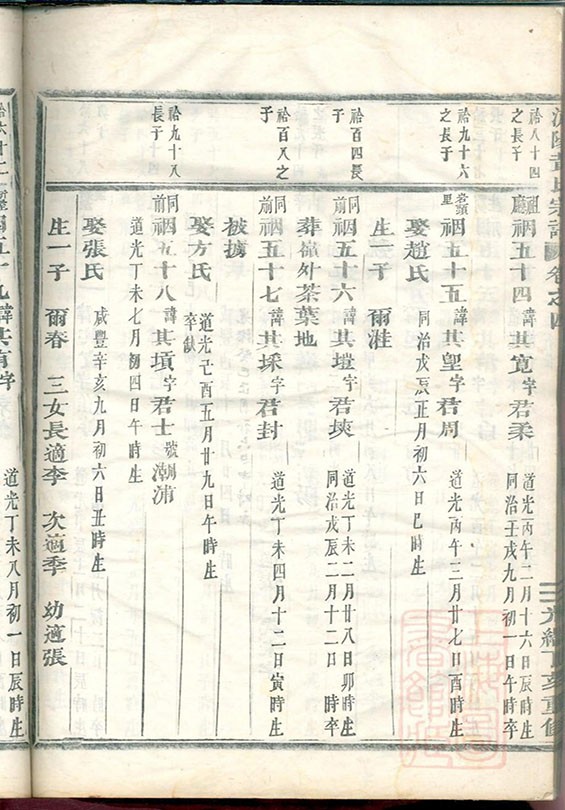 祫八十四之長子
祖廳 祻五十四諱其寬字君柔 道光丙午二月十六日辰時生 同治壬戌九月初一日午時卒
祫九十六之長子
岩頭里 祻五十五諱其皇字君周 道光丙午三月廿七日酉時生
娶趙氏 同治戊辰正月初六日巳時生
生一子 爾淮
祫百四長子
同前 祻五十六諱其塏字君埉 道光丁未二月廿八日卯時生 同治戊辰二月十二日 時卒
葬嶺外茶葉地
祫百八之子
同前 祻五十七諱其埰字君封 道光丁未四月十二日寅時生
被擄
娶方氏 道光己酉五月廿九日午時生 卒缺
祫九十八長子
同前 祻五十八諱其塤字君士號潮浦 道光丁未七月初四日午時生
娶張氏 咸豐辛亥九月初六日丑時生
生一子 爾春 三女長適李 次適季 幼適張
五十九諱其育字 道光丁未八月初一日辰時生
氏宗譜 卷之四
光緒丁亥重修